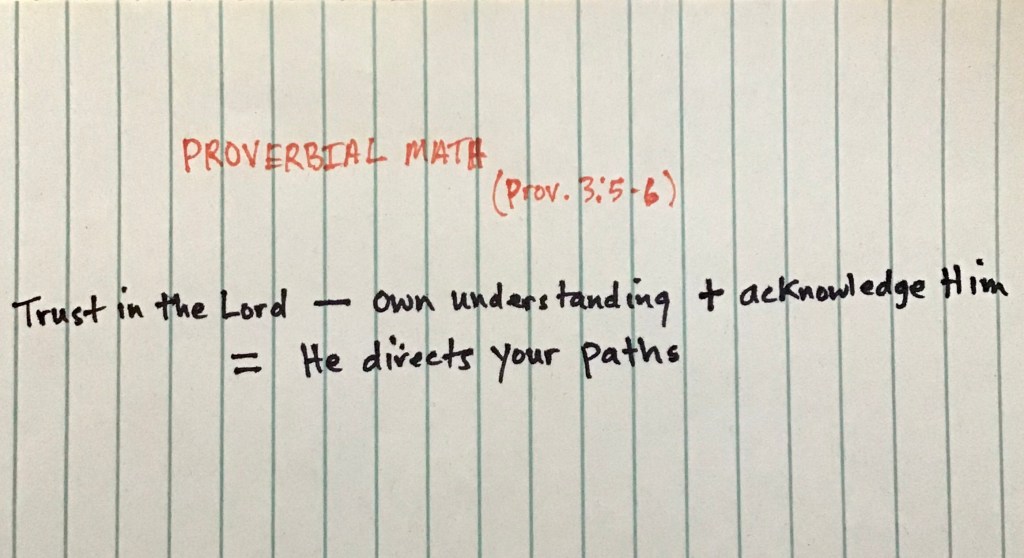 PROVERBIAL MATH
(Prov. 3:5-6)
Trust in the Lord — own understanding + acknowledge Him
= He directs your paths